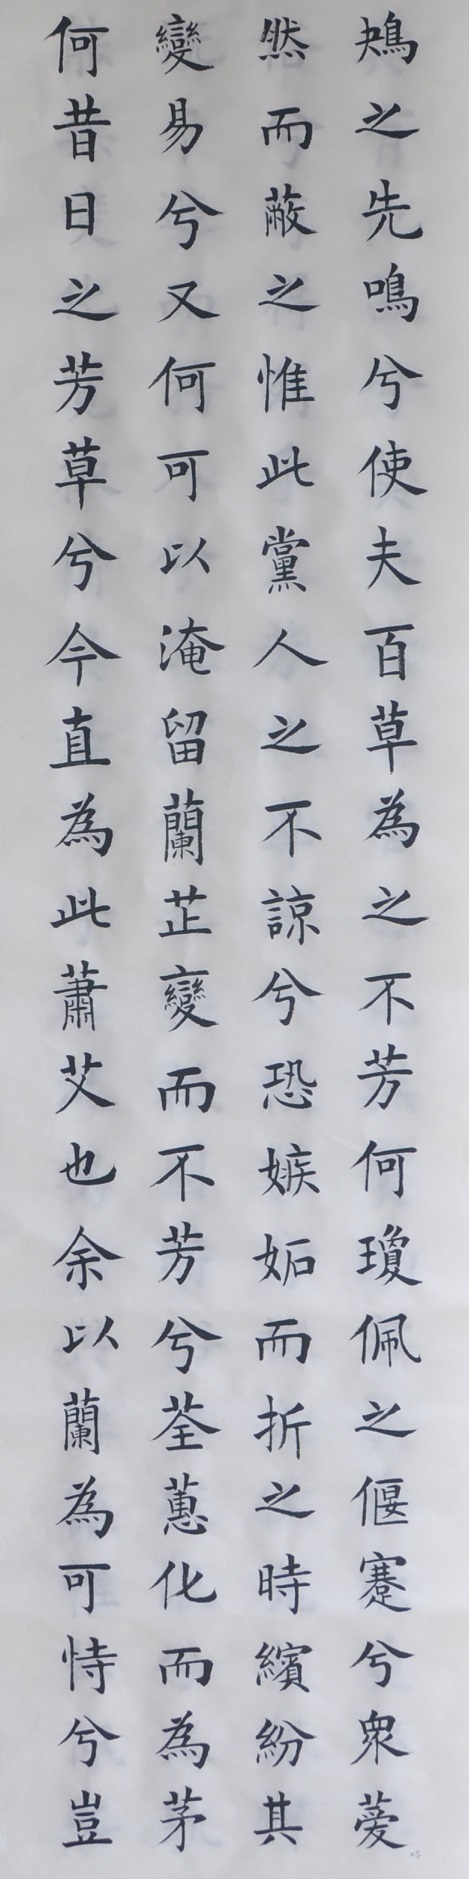 鴂之先鳴兮使夫百草為之不芳何瓊佩之偃蹇兮衆薆
然而蔽之惟此黨人之不諒兮恐嫉妬而折之時繽紛其
變易兮又何可以淹留蘭芷變而不芳兮荃蕙化而為茅
何昔日之芳草兮今直為此蕭艾也余以蘭為可恃兮豈